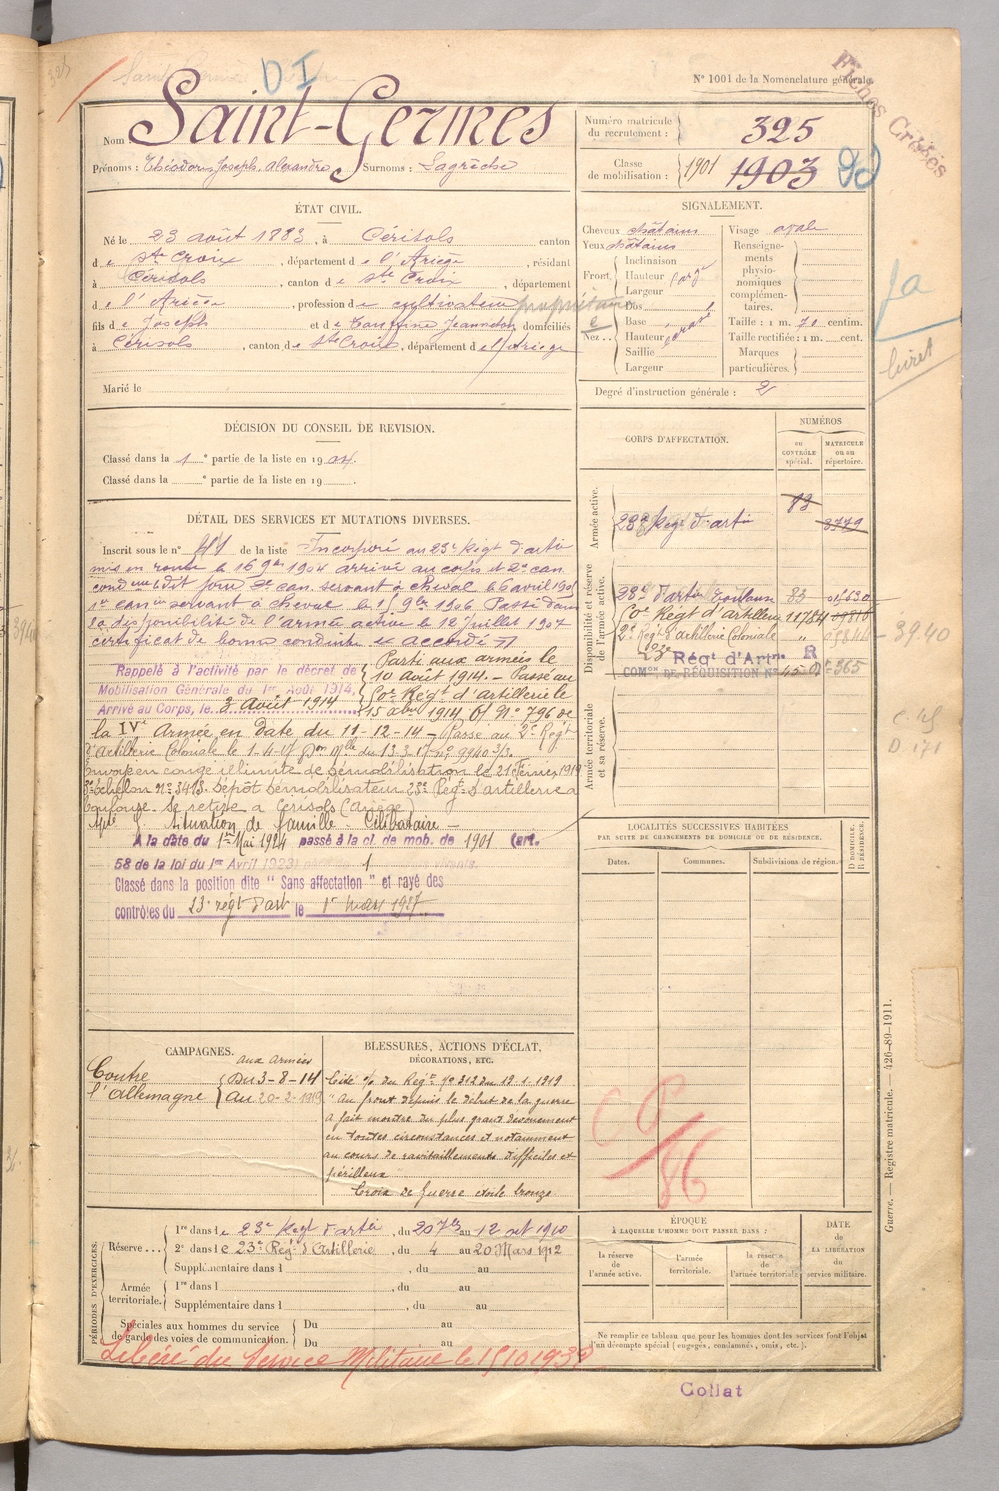 N° 1001 de la Nomenclature générale.
D I
Fiches Croisés
Nom Saint-Germes
Prénoms : Théodore Joseph, Alexandre Surnoms : Lagrèche
Numéro matricule du recrutement : 325
Classe de mobilisation : 1901 1903
ÉTAT CIVIL.
Né le 23 août 1883, à Cérisols canton
de Ste Croix, département de l'Ariège, résidant
à Cérisols, canton de Ste Croix, département
de l'Ariège, profession de cultivateur propriétaire
fils de Joseph et de Jeannetou domiciliés
à Cérisols, canton de Ste Croix, département de l'Ariège
Marié le
SIGNALEMENT.
Cheveux châtains Visage ovale
Yeux châtains
Front. Inclinaison
Hauteur large
Largeur
Nez.. Dos
Base
Hauteur
Saillie
Largeur
Renseignements physionomiques complémentaires.
Taille : 1 m. 70 centim.
Taille rectifiée : 1 m. cent.
Marques particulières.
Degré d'instruction générale : 2
livret
DÉCISION DU CONSEIL DE REVISION.
Classé dans la 1e partie de la liste en 1904.
Classé dans la e partie de la liste en 19 .
DÉTAIL DES SERVICES ET MUTATIONS DIVERSES.
Inscrit sous le n° 41 de la liste Incorporé au 23e Régt d'artie
mis en route le 16 9bre 1904 arrivé au corps et 2e can
condteur le dit jour 2e can. servant à cheval le 6 avril 1905
1er can ier servant à cheval le 1er 9bre 1906 Passé dans
la disponibilité de l'armée active le 12 juillet 1907
certificat de bonne conduite accordé
Rappelé à l'activité par le décret de
Mobilisation Générale du 1er Août 1914,
Arrivé au Corps, le 3 Août 1914
Parti aux armées le
10 août 1914. — Passé au
60e Régt d'artillerie le
15 xbre 1914, N° 796 de
la IVe Armée en Date du 11-12-14 — Passé au 2e Régt
d'Artillerie Coloniale le 1-4-17 Don Mlle du 13.3.17 n° 9940 3/3
Envoyé en congé illimité de démobilisation le 21 Février 1919
3e échelon N° 3413. Dépôt démobilisateur 23e Régt d'artillerie à
Toulouse. Se retire à Cérisols (Ariège)
Situation de famille - Célibataire -
A la date du 1er Mai 1924 passé à la cl. de mob. de 1901 (art.
58 de la loi du 1er Avril 1923)
Classé dans la position dite " Sans affectation " et rayé des
contrôles du 23e régt d'art le 1er mars 1927
CORPS D'AFFECTATION.
NUMÉROS
au CONTRÔLE spécial.
MATRICULE ou au répertoire.
Armée active.
23e Rég. d'artie 83 8779
Disponibilité et réserve de l'armée active.
23e d'artie Toulouse 83
60e Régt d'artillerie 11784
2e Régt d'artillerie Coloniale "
39.40
23e Régt d'Artrie R
COMon DE RÉQUISITION N° 45
Armée territoriale et sa réserve.
LOCALITÉS SUCCESSIVES HABITÉES
PAR SUITE DE CHANGEMENTS DE DOMICILE OU DE RÉSIDENCE.
Dates. Communes. Subdivisions de région.
D DOMICILE. R RÉSIDENCE.
CAMPAGNES.
aux Armées
Contre l'Allemagne
Du 3-8-14
au 20-2-1919
BLESSURES, ACTIONS D'ÉCLAT,
DÉCORATIONS, ETC.
Cité % du Régt n° 312 du 19.1.1919
"Au front depuis le début de la guerre
a fait montre du plus grand dévouement
en toutes circonstances et notamment
au cours de ravitaillements difficiles et
périlleux
Croix de Guerre étoile bronze
Guerre. — Registre matricule. — 426-89-1911.
PÉRIODES D'EXERCICES.
Réserve...
1re dans le 23e Régt d'artie, du 20 7bre au 12 oct 1910
2e dans le 23e Régt d'Artillerie, du 4 au 20 Mars 1912
Supplémentaire dans l , du au
Armée territoriale.
1re dans l , du au
Supplémentaire dans l , du au
Spéciales aux hommes du service de garde des voies de communication.
Du au
Du au
Libéré du Service Militaire le 15/10/1932
ÉPOQUE
À LAQUELLE L'HOMME DOIT PASSER DANS :
la réserve de l'armée active.
l'armée territoriale.
la réserve de l'armée territoriale
DATE
de
LA LIBÉRATION
du
service militaire.
Ne remplir ce tableau que pour les hommes dont les services font l'objet
d'un décompte spécial (engagés, condamnés, omis, etc.).
Collat